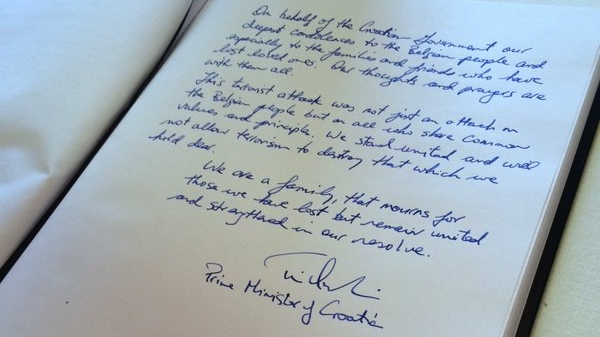 On behalf of the Croatian Government our
deepest condolences to the Belgian people and
especially to the families and friends who have
lost loved ones. Our thoughts and prayers are
with them all.
This terorist attack was not just an attack on
the Belgian people but on all who share common
values and principle. We stand united and will
not allow terrorism to destroy that which we
hold dear.
We are a family, that mourns for
those we have lost but remain united
and strengthened in our resolve.
Prime Minister of Croatia